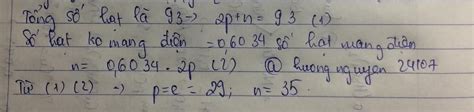 Tổng số hạt là 93 → 2p+n = 93 (1)
Số hạt ko mang điện = 0,6034 số hạt mang điện
n = 0,6034 . 2p (2) @ huongnguyen 24107
Từ (1) (2) → p=e = 29; n = 35.